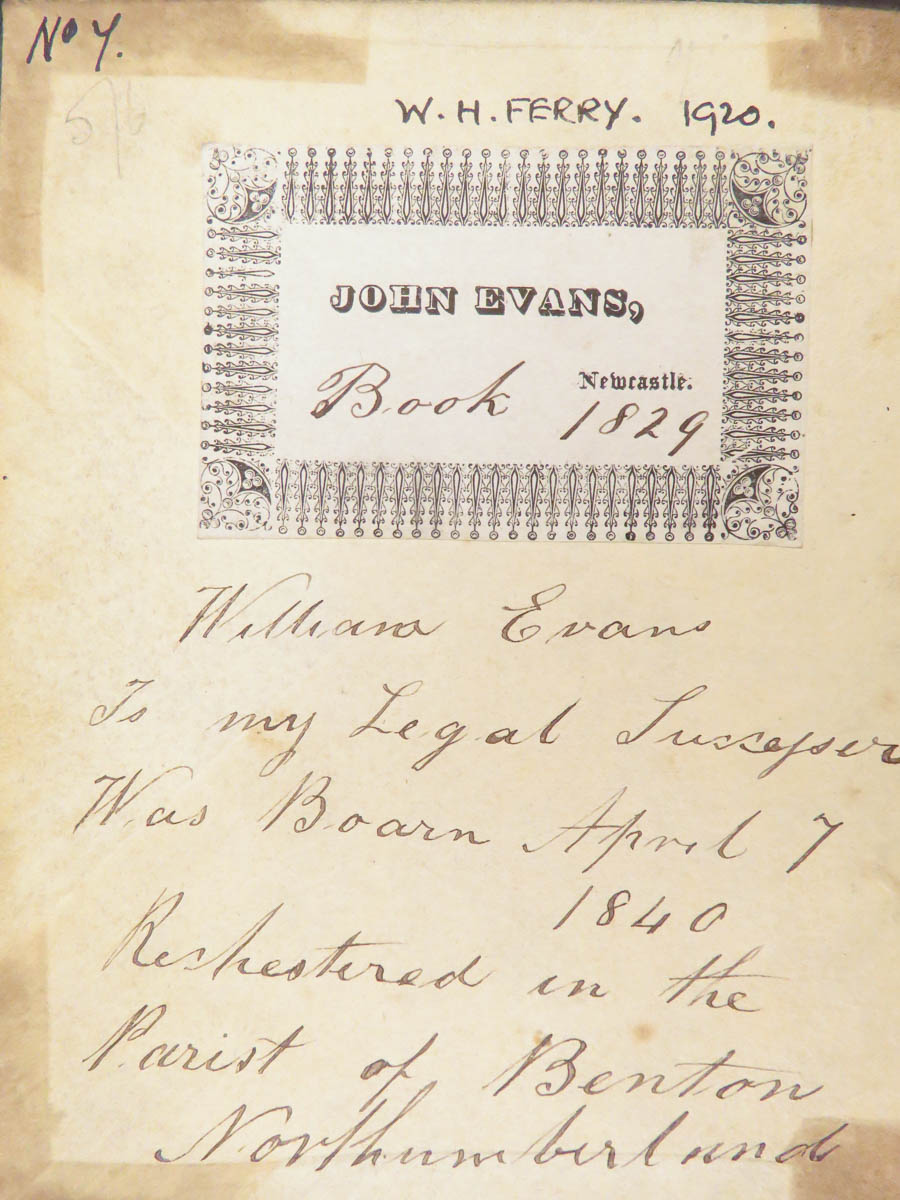 No 7.
W. H. FERRY. 1920.
JOHN EVANS,
Newcastle.
Book 1829
William Evans
Is my Legal Sucsesser
Was Boarn April 7
1840
Reshestered in the
Parist of Benton
Northumberland